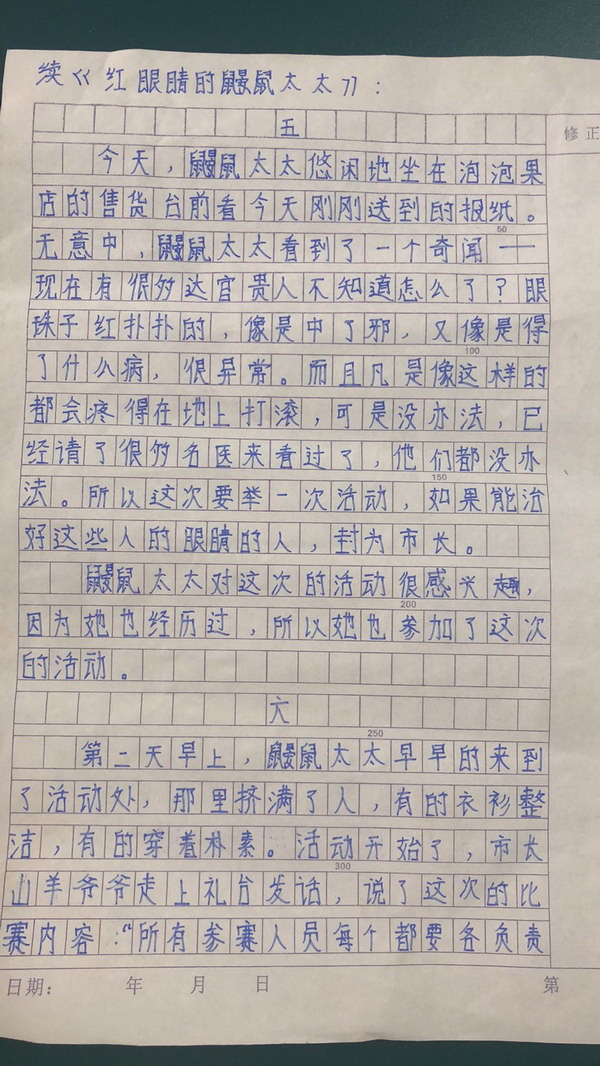 续《红眼睛的鼹鼠太太》：
五
修正
今天，鼹鼠太太悠闲地坐在泡泡果
店的售货台前看今天刚刚送到的报纸。
50
无意中，鼹鼠太太看到了一个奇闻——
现在有很多达官贵人不知道怎么了？眼
珠子红扑扑的，像是中了邪，又像是得
100
了什么病，很异常。而且凡是像这样的
都会疼得在地上打滚，可是没办法，已
经请了很多名医来看过了，他们都没办
150
法。所以这次要举一次活动，如果能治
好这些人的眼睛的人，封为市长。
鼹鼠太太对这次的活动很感兴趣，
200
因为她也经历过，所以她也参加了这次
的活动。
六
250
第二天早上，鼹鼠太太早早的来到
了活动处，那里挤满了人，有的衣衫整
洁，有的穿着朴素。活动开始了，市长
300
山羊爷爷走上礼台发话，说了这次的比
赛内容：“所有参赛人员每个都要各负责
日期： 年 月 日 第